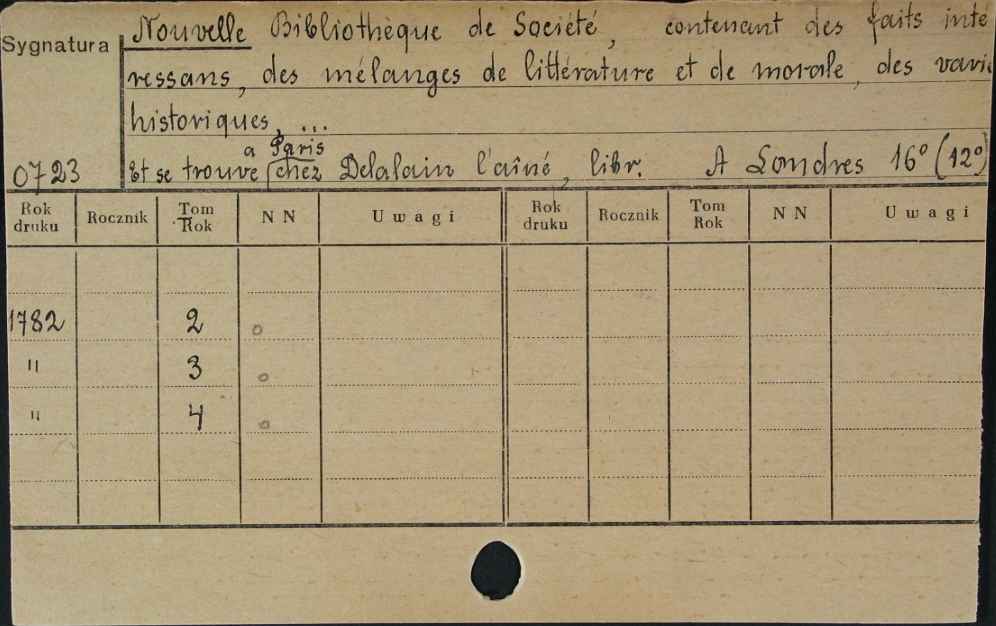 Sygnatura
Nouvelle Bibliothèque de Société, contenant des faits inte
ressans, des mélanges de littérature et de morale, des vari
historiques, ...
a Paris
0723 Et se trouve chez Delalain l'aîné, libr. A Londres 16° (12°)
Rok druku Rocznik Tom Rok NN Uwagi Rok druku Rocznik Tom Rok NN Uwagi
1782 2 o
" 3 o
" 4 o